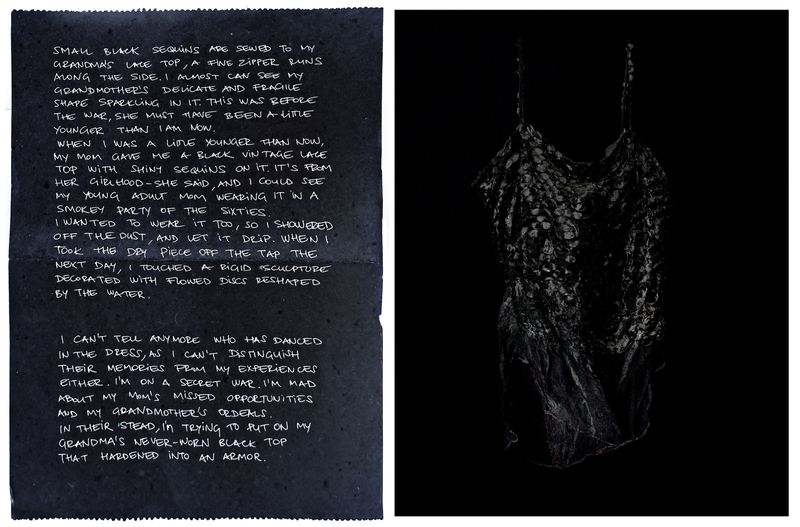 SMALL BLACK SEQUINS ARE SEWED TO MY
GRANDMA'S LACE TOP, A FINE ZIPPER RUNS
ALONG THE SIDE. I ALMOST CAN SEE MY
GRANDMOTHER'S DELICATE AND FRAGILE
SHAPE SPARKLING IN IT. THIS WAS BEFORE
THE WAR, SHE MUST HAVE BEEN A LITTLE
YOUNGER THAN I AM NOW.
WHEN I WAS A LITTLE YOUNGER THAN NOW,
MY MOM GAVE ME A BLACK VINTAGE LACE
TOP WITH SHINY SEQUINS ON IT. IT'S FROM
HER GIRLHOOD - SHE SAID, AND I COULD SEE
MY YOUNG ADULT MOM WEARING IT IN A
SMOKEY PARTY OF THE SIXTIES.
I WANTED TO WEAR IT TOO, SO I SHOWERED
OFF THE DUST, AND LET IT DRIP. WHEN I
TOOK THE DRY PIECE OFF THE TAP THE
NEXT DAY, I TOUCHED A RIGID SCULPTURE
DECORATED WITH FLOWED DISCS RESHAPED
BY THE WATER.
I CAN'T TELL ANYMORE WHO HAS DANCED
IN THE DRESS, AS I CAN'T DISTINGUISH
THEIR MEMORIES FROM MY EXPERIENCES
EITHER. I'M ON A SECRET WAR. I'M MAD
ABOUT MY MOM'S MISSED OPPORTUNITIES
AND MY GRANDMOTHER'S ORDEALS.
IN THEIR ISTEAD, I'M TRYING TO PUT ON MY
GRANDMA'S NEVER-WORN BLACK TOP
THAT HARDENED INTO AN ARMOR.